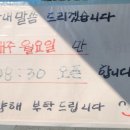 내말씀 드리겠습니다
매주 월요일 만
08:30 오픈 합니다
양해 부탁드립니다